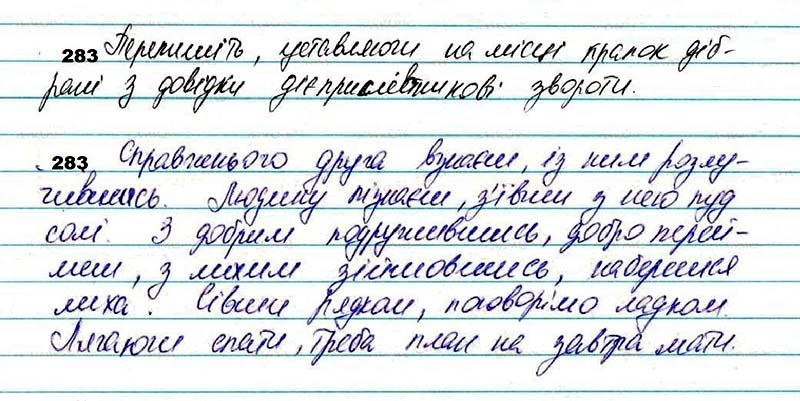 283 Перепишіть, уставляючи на місці крапок діб-
рані з довідки дієприслівникові звороти.
283 Справжнього друга взнаєш, із ним розлу-
чившись. Людину пізнаєш, з'ївши з нею пуд
солі. З добрим подружившись, добро перей-
меш, з лихим зійшовшись, наберешся
лиха. Сівши рядком, поговорімо ладком.
Лягаючи спати, треба план на завтра мати.